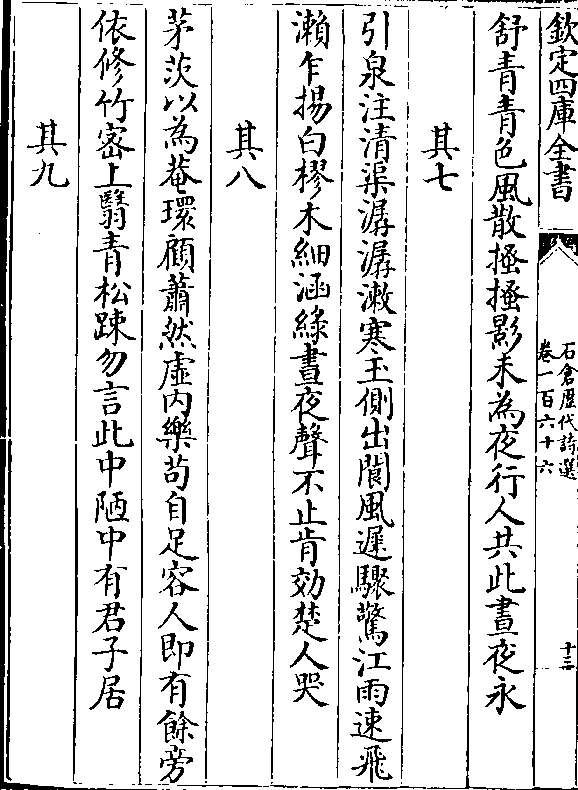 欽定四庫全書
石倉歷代詩選
卷一百六十六
十三
舒青青色風散搔搔影未為夜行人共此晝夜永
其七
引泉注清渠潺潺漱寒玉側出閬風遲驟驚江雨速飛
瀨乍揚白樛木細涵綠晝夜聲不止肯効楚人哭
其八
茅茨以為菴環顧蕭然虛内樂苟自足容人即有餘旁
依修竹宻上翳青松踈勿言此中陋中有君子居
其九